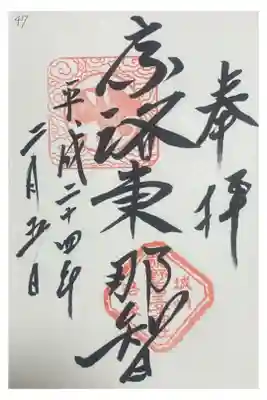 47
奉拝
京洛東那智
平成二十四年
二月五日